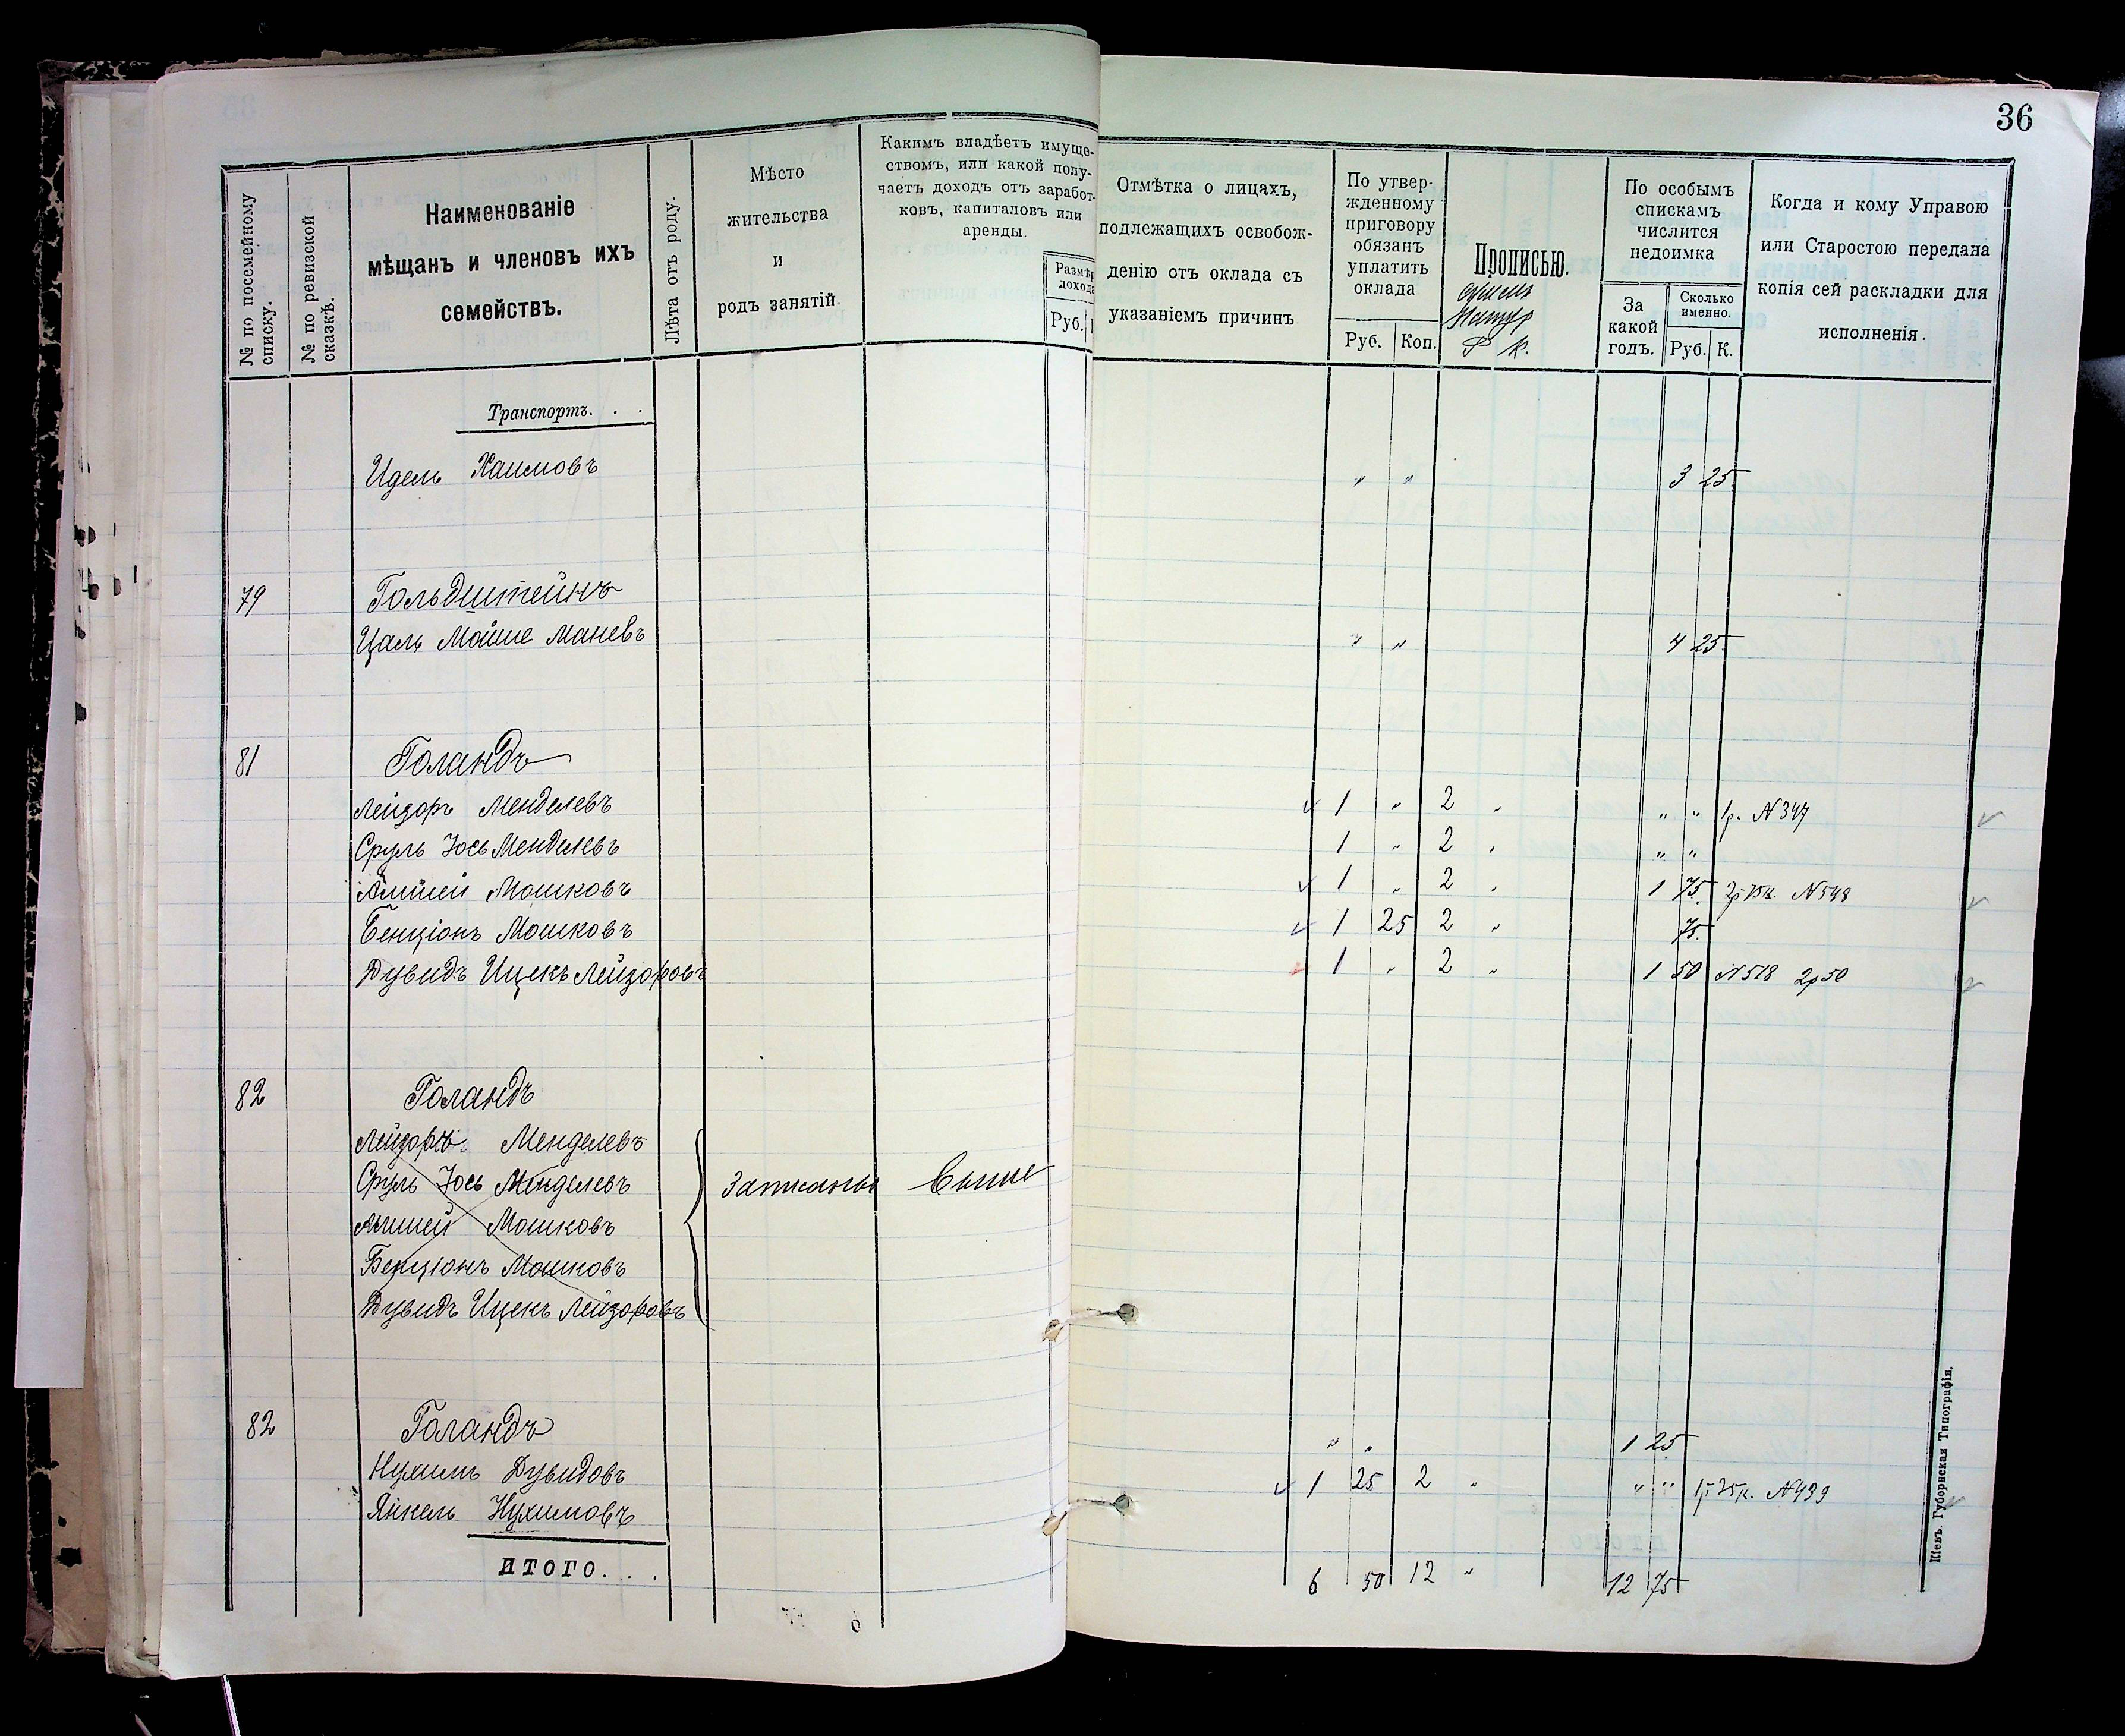 36
№ по посемейному списку.
№ по ревизской сказкѣ.
Наименованіе
мѣщанъ и членовъ ихъ
семействъ.
Лѣта отъ роду.
Мѣсто
жительства
и
родъ занятій.
Какимъ владѣетъ имуще-
ствомъ, или какой полу-
чаетъ доходъ отъ заработ-
ковъ, капиталовъ или
аренды.
Размѣр
доход
Руб.
Отмѣтка о лицахъ,
подлежащихъ освобож-
денію отъ оклада съ
указаніемъ причинъ
По утвер-
жденному
приговору
обязанъ
уплатить
оклада
Руб. Коп.
Прописью.
Р к.
По особымъ
спискамъ
числится
недоимка
За
какой
годъ.
Сколько
именно.
Руб. К.
Когда и кому Управою
или Старостою передана
копія сей раскладки для
исполненія.
Транспортъ. . .
Идель Хаимовъ " " 3 25
79 Гольдштейнъ
Цаль Мойше Маневъ " " 4 25
81 Голандъ
Лейзоръ Менделевъ 1 " 2 " " " 1р. N 347
Сруль Іось Менделевъ 1 " 2 " " "
Амшей Мошковъ 1 " 2 " 1 75 N 548
Бенціонъ Мошковъ 1 25 2 " 75
Дувидъ Ицекъ Лейзоровъ 1 " 2 " 1 50 N 518 2р 50
82 Голандъ
Лейзоръ Менделевъ
Сруль Іось Менделевъ Записаны выше
Амшей Мошковъ
Бенціонъ Мошковъ
Дувидъ Ицекъ Лейзоровъ
82 Голандъ " " 1 25
Нухимъ Дувидовъ 1 25 2 " " " 1р 25к. N 439
Янкель Нухимовъ
ИТОГО. . . 6 50 12 " 12 75
Кіевъ. Губернская Типографія.